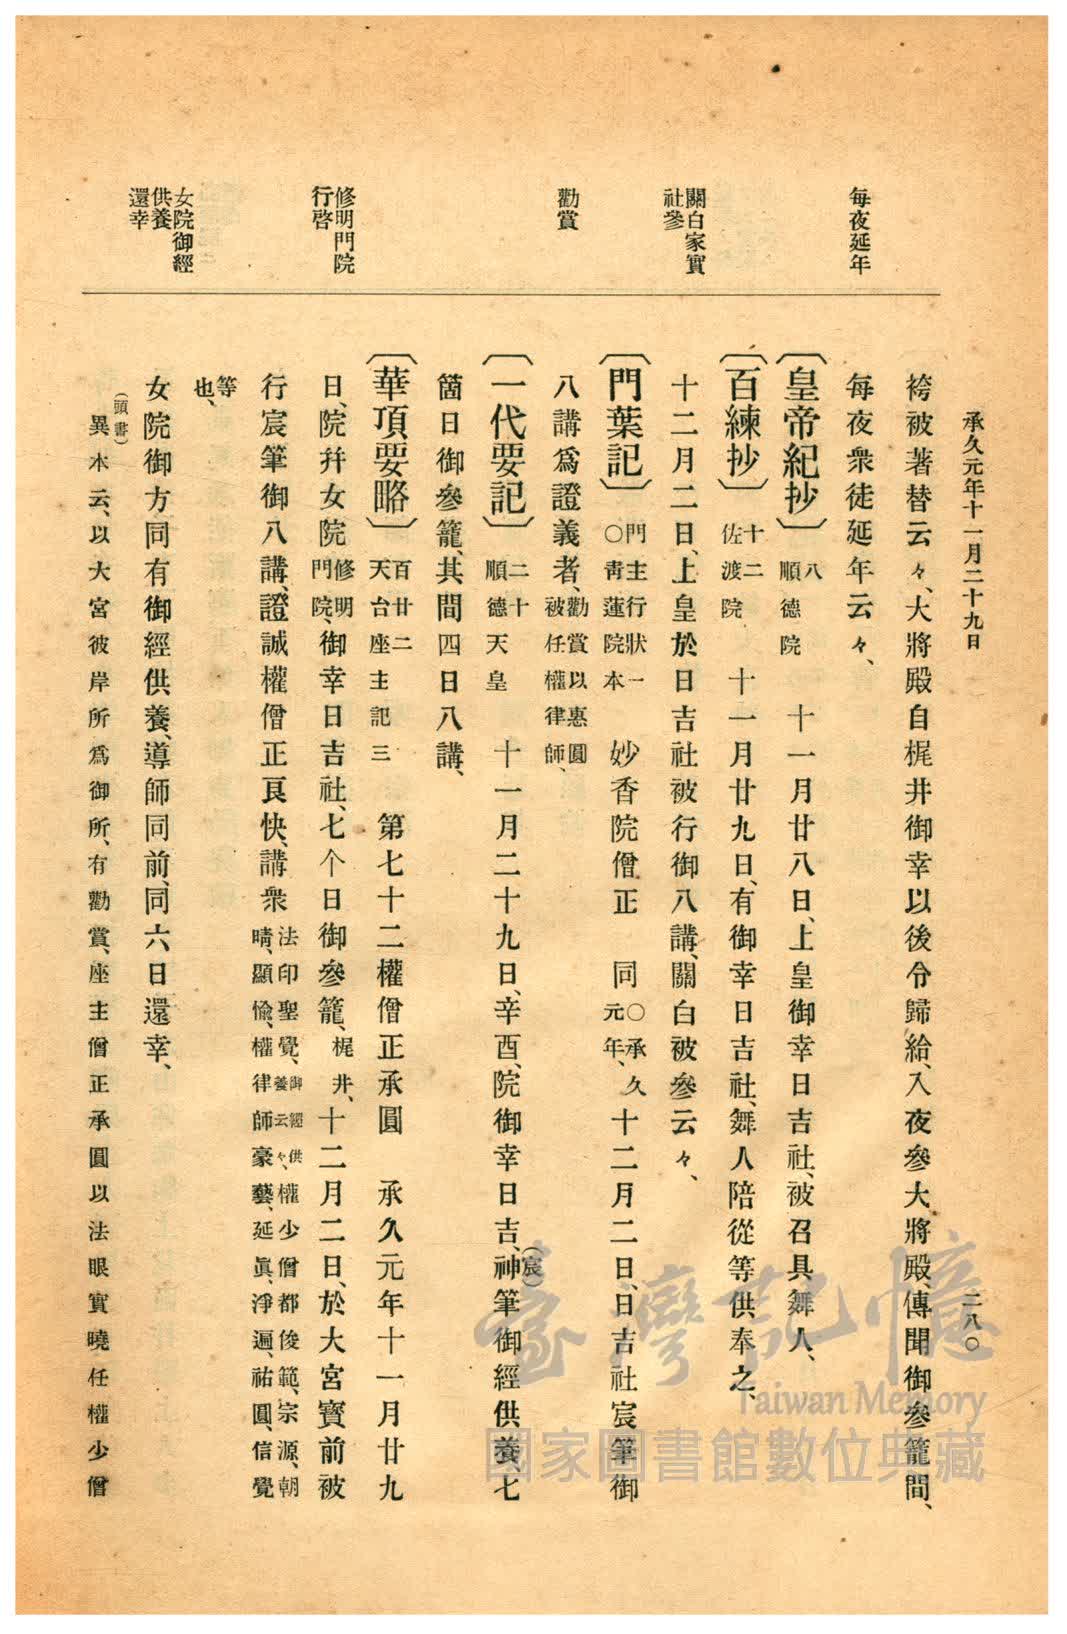 承久元年十一月二十九日
二八〇
每夜延年
關白家實
社參
勸賞
修明門院
行啓
女院御經
供養
還幸
袴被著替云々、大將殿自梶井御幸以後令歸給、入夜參大將殿、傳聞御參籠間、
每夜衆徒延年云々、
〔皇帝紀抄〕 八 順德院 十一月廿八日、上皇御幸日吉社、被召具舞人、
〔百練抄〕 十二 佐渡院 十一月廿九日、有御幸日吉社、舞人陪從等供奉之、
十二月二日、上皇於日吉社被行御八講、關白被參云々、
〔門葉記〕 門主行狀一 〇青蓮院本 妙香院僧正 同 〇承久元年、 十二月二日、日吉社宸筆御
八講爲證義者、勸賞以惠圓被任權律師、
〔一代要記〕 二十 順德天皇 十一月二十九日、辛酉、院御幸日吉、神(宸)筆御經供養、七
箇日御參籠、其間四日八講、
〔華頂要略〕 百廿二 天台座主記三 第七十二權僧正承圓 承久元年十一月廿九
日、院幷女院修明門院、御幸日吉社、七个日御參籠、梶井、十二月二日、於大宮寶前被
行宸筆御八講、證誠權僧正良快、講衆法印聖覺、御經供養云々、權少僧都俊範、宗源、朝
晴、顯愉、權律師豪藝、延眞、淨遍、祐圓、信覺
等
也、
女院御方同有御經供養、導師同前、同六日還幸、
(頭書)
異本云、以大宮彼岸所爲御所、有勸賞、座主僧正承圓以法眼實曉任權少僧
臺灣記憶
Taiwan Memory
國家圖書館數位典藏